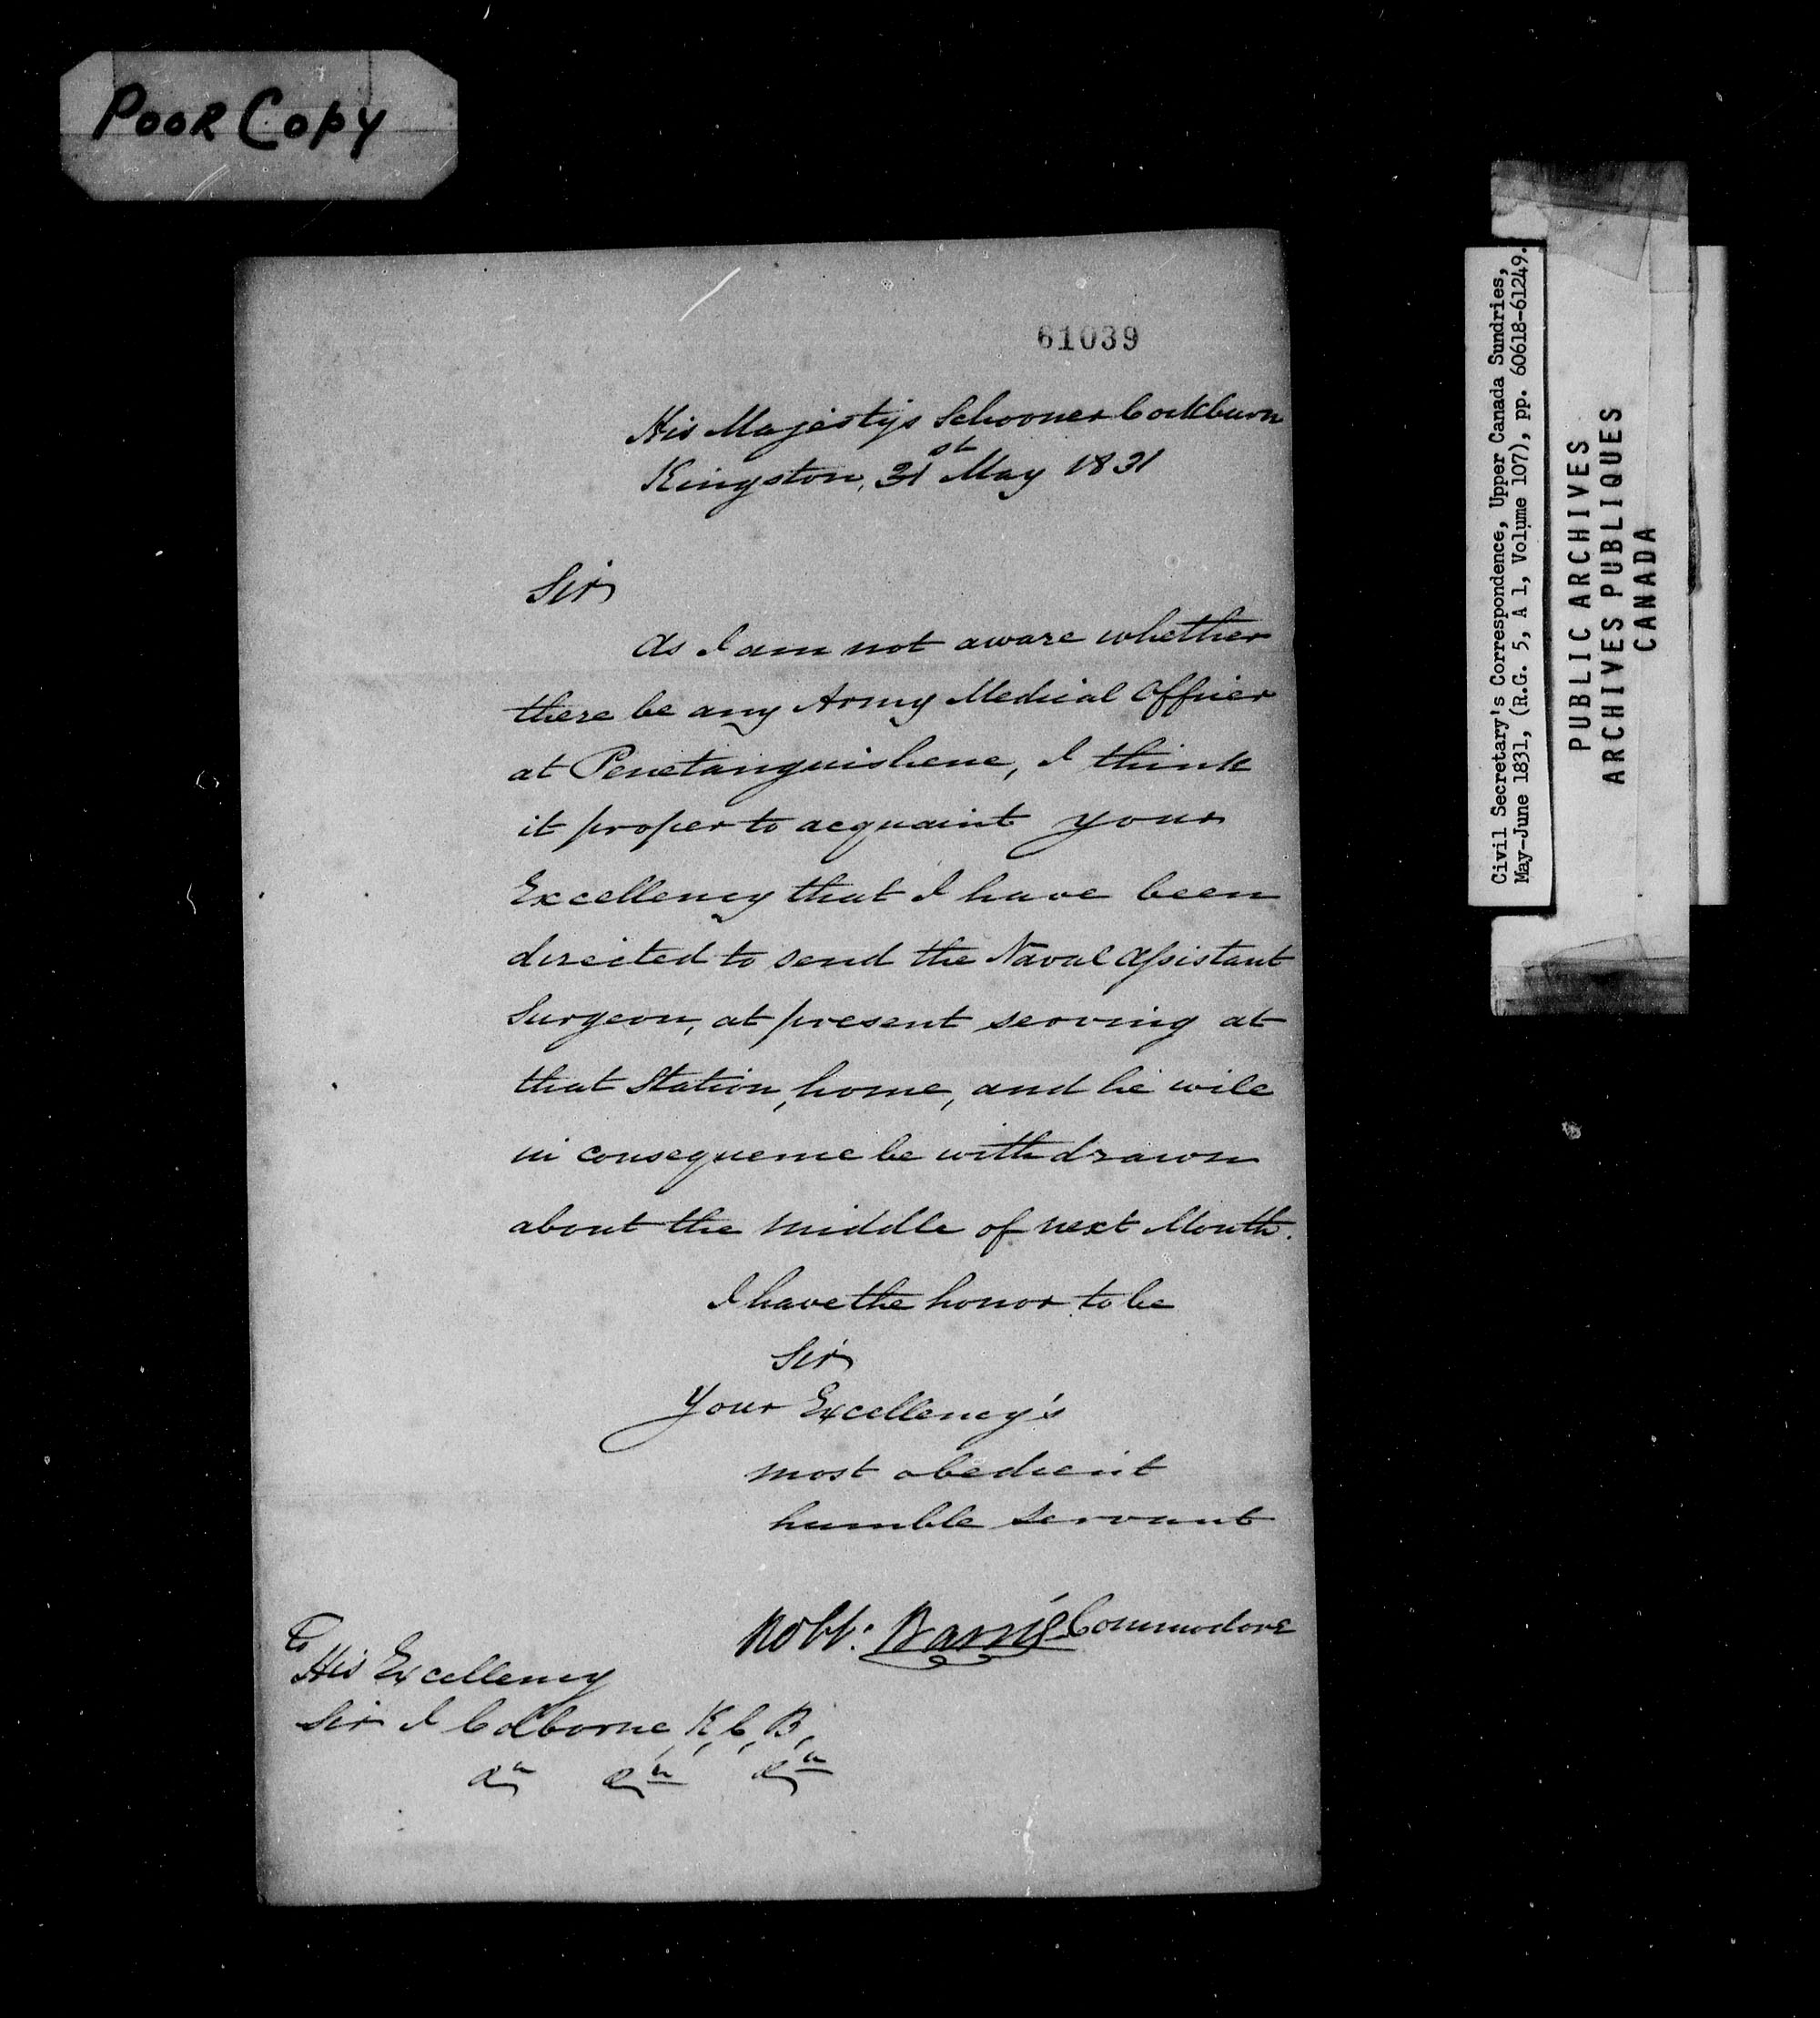 Poor Copy
61039
His Majestys Schooner Cockburn
Kingston, 31st May 1831
Sir
As I am not aware whether
there be any Army Medical Officer
at Penetanguishene, I think
it proper to acquaint your
Excellency that I have been
directed to send the Naval Assistant
Surgeon, at present serving at
that Station, home, and he will
in consequence be withdrawn
about the middle of next Month.
I have the honor to be
Sir
Your Excellency's
most obedient
humble servant
Robt: Barrie Commodore
To
His Excellency
Sir J Colborne, K, C, B,
&c &c &c
Civil Secretary's Correspondence, Upper Canada Sundries,
May-June 1831, (R.G. 5, A 1, Volume 107), pp. 60618-61249.
PUBLIC ARCHIVES
ARCHIVES PUBLIQUES
CANADA